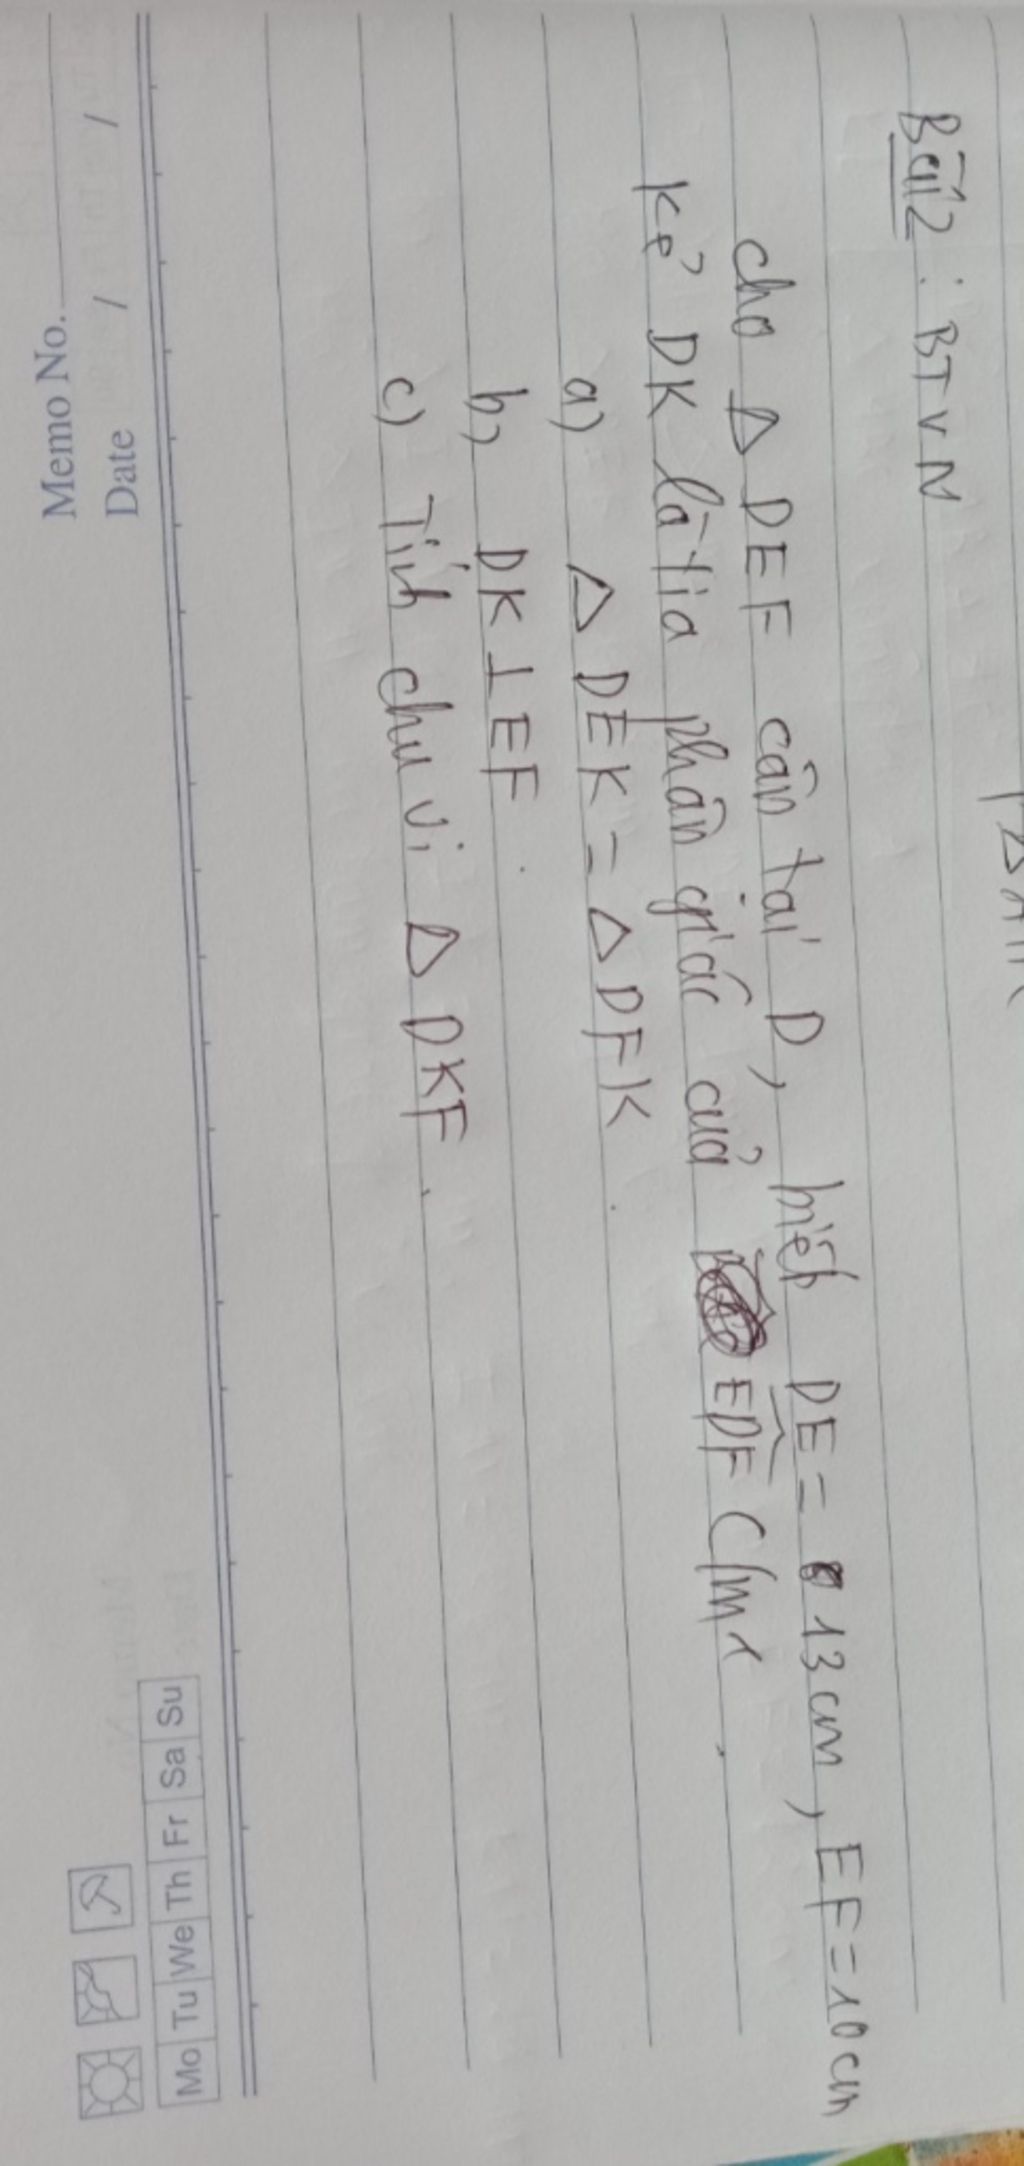 Bài 2 : BTVN
cho Δ DEF cân tại D, biết DE = 13 cm, EF = 10 cm
Kẻ DK là tia phân giác của EDF C/m r
a) Δ DEK = Δ DFK
b, DK ⊥ EF
c) Tính chu vi Δ DKF.
Memo No.
Date / /
Mo Tu We Th Fr Sa Su